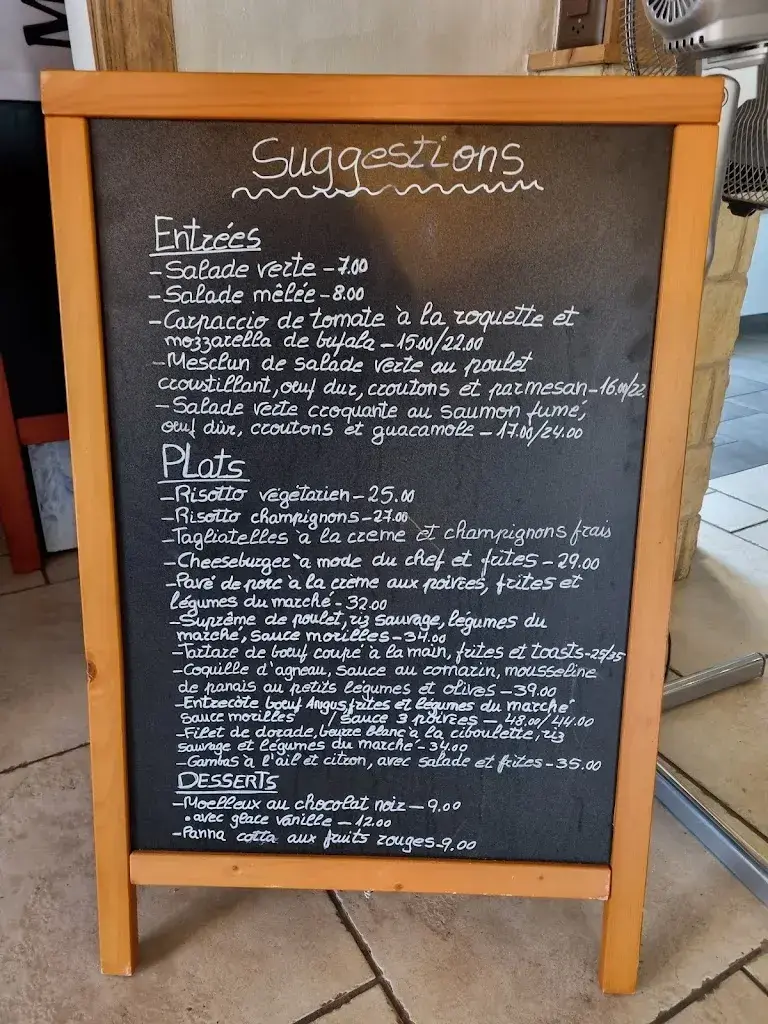 Suggestions
Entrées
- Salade verte - 7.00
- Salade mêlée - 8.00
- Carpaccio de tomate à la roquette et
mozzarella de bufala - 15.00/22.00
- Mesclun de salade verte au poulet
croustillant, œuf dur, croutons et parmesan - 16.00/22.
- Salade verte croquante au saumon fumé,
œuf dûr, croutons et guacamole - 17.00/24.00
PLats
- Risotto végétarien - 25.00
- Risotto champignons - 27.00
- Tagliatelles à la crème et champignons frais
- Cheeseburger à mode du chef et frites - 29.00
- Pavé de porc à la crème aux poivres, frites et
légumes du marché - 32.00
- Suprême de poulet, riz sauvage, légumes du
marché, sauce morilles - 34.00
- Tartare de bœuf coupé à la main, frites et toasts - 25/35
- Coquille d'agneau, sauce au romarin, mousseline
de panais au petits légumes et olives - 39.00
- Entrecôte bœuf Angus, frites et légumes du marché
sauce morilles / sauce 3 poivres - 48.00/44.00
- Filet de dorade, beurre blanc à la ciboulette, riz
sauvage et légumes du marché - 34.00
- Gambas à l'ail et citron, avec salade et frites - 35.00
DESSERTS
- Moelleux au chocolat noir - 9.00
• avec glace vanille - 12.00
- Panna cotta aux fruits rouges - 9.00